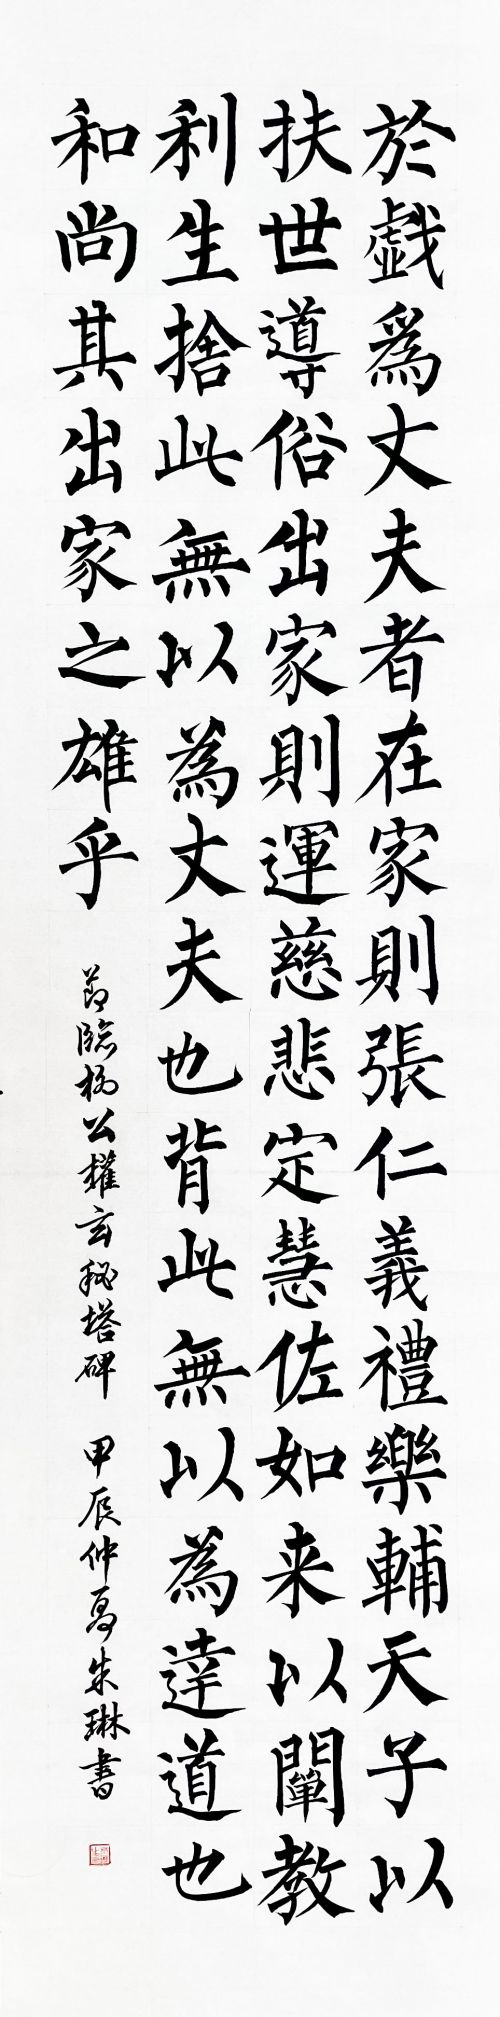 於戲為丈夫者在家則張仁義禮樂輔天子以
扶世導俗出家則運慈悲定慧佐如来以闡教
利生捨此無以為丈夫也背此無以為達道也
和尚其出家之雄乎
節臨柳公權玄秘塔碑 甲辰仲夏朱琳書